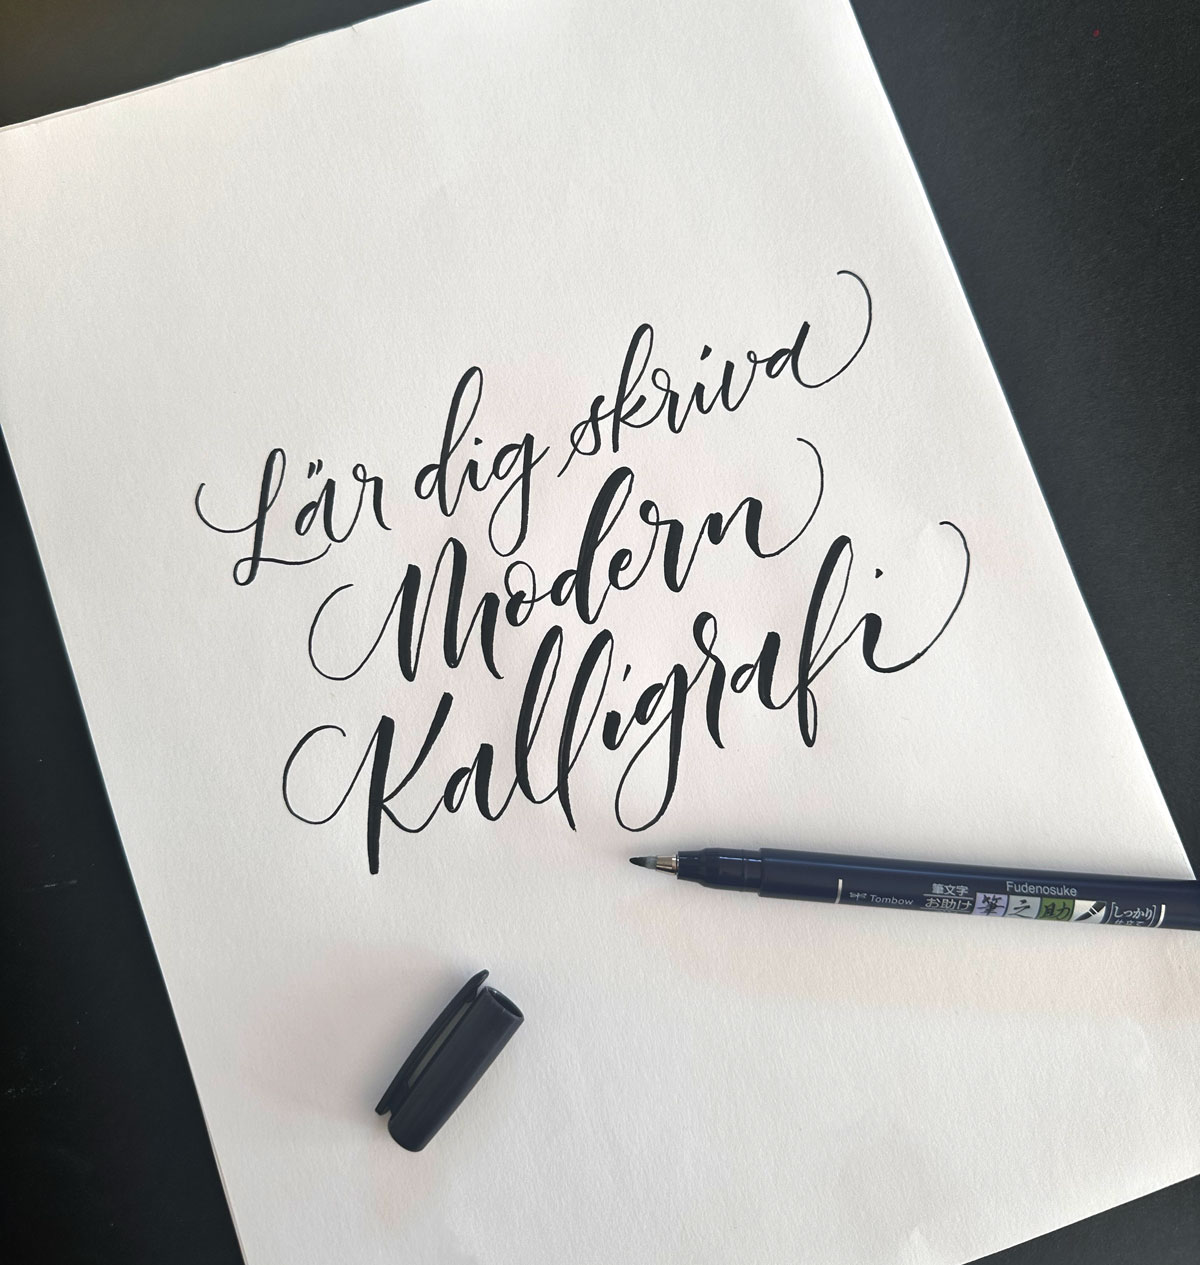 Lär dig skriva
Modern
Kalligrafi
Tombow
筆文字
お助け
Fudenosuke
筆之助
しっかり
仕立て